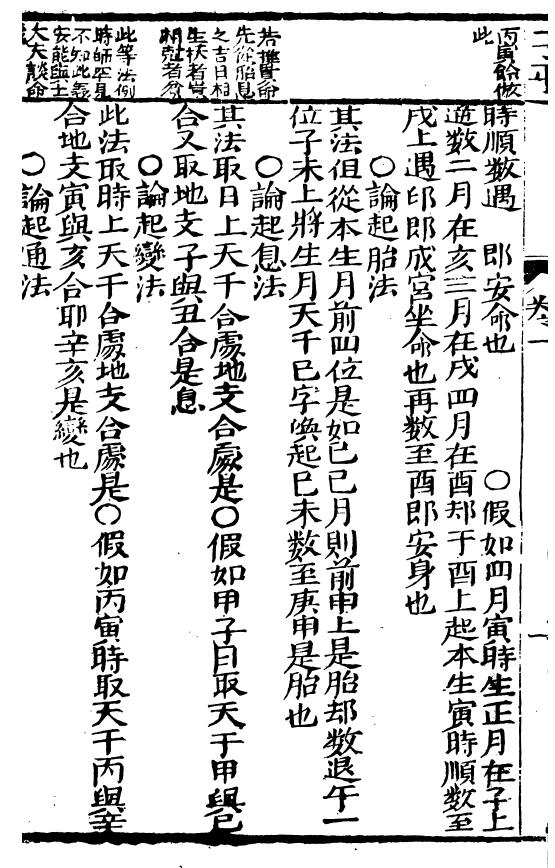 三命
卷之一
丙寅餘倣
此
若推貴命
先從胎息
之吉日相
生扶者貴
相尅者貧
此等法例
時師罕見
不知此義
安能與士
大夫談命
時順數遇　卽安命也　○假如四月寅時生正月在子上
逆數二月在亥三月在戌四月在酉却于酉上起本生寅時順數至
戌上遇卯卽戌宮坐命也再數至酉卽安身也
○論起胎法
其法但從本生月前四位是如己巳月則前申上是胎却數退午一
位子未上將生月天干己字喚起己未數至庚申是胎也
○論起息法
其法取日上天干合處地支合處是○假如甲子日取天干甲與己
合又取地支子與丑合是息
○論起變法
此法取時上天干合處地支合處是○假如丙寅時取天干丙與辛
合地支寅與亥合耶辛亥是變也
○論起通法